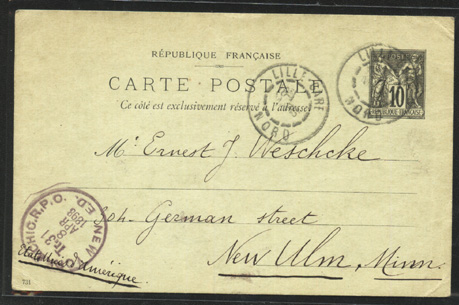 RÉPUBLIQUE FRANÇAISE
CARTE POSTALE
Ce côté est exclusivement réservé à l'adresse
POSTES
10
RÉPUBLIQUE FRANÇAISE
LILLE GARE
NORD
LILLE
NORD
Mr. Ernest J. Weschcke
German street
New Ulm, Minn.
États Unis d'Amérique.
CHIC. R.P.O.
APR
1898
NEW
731